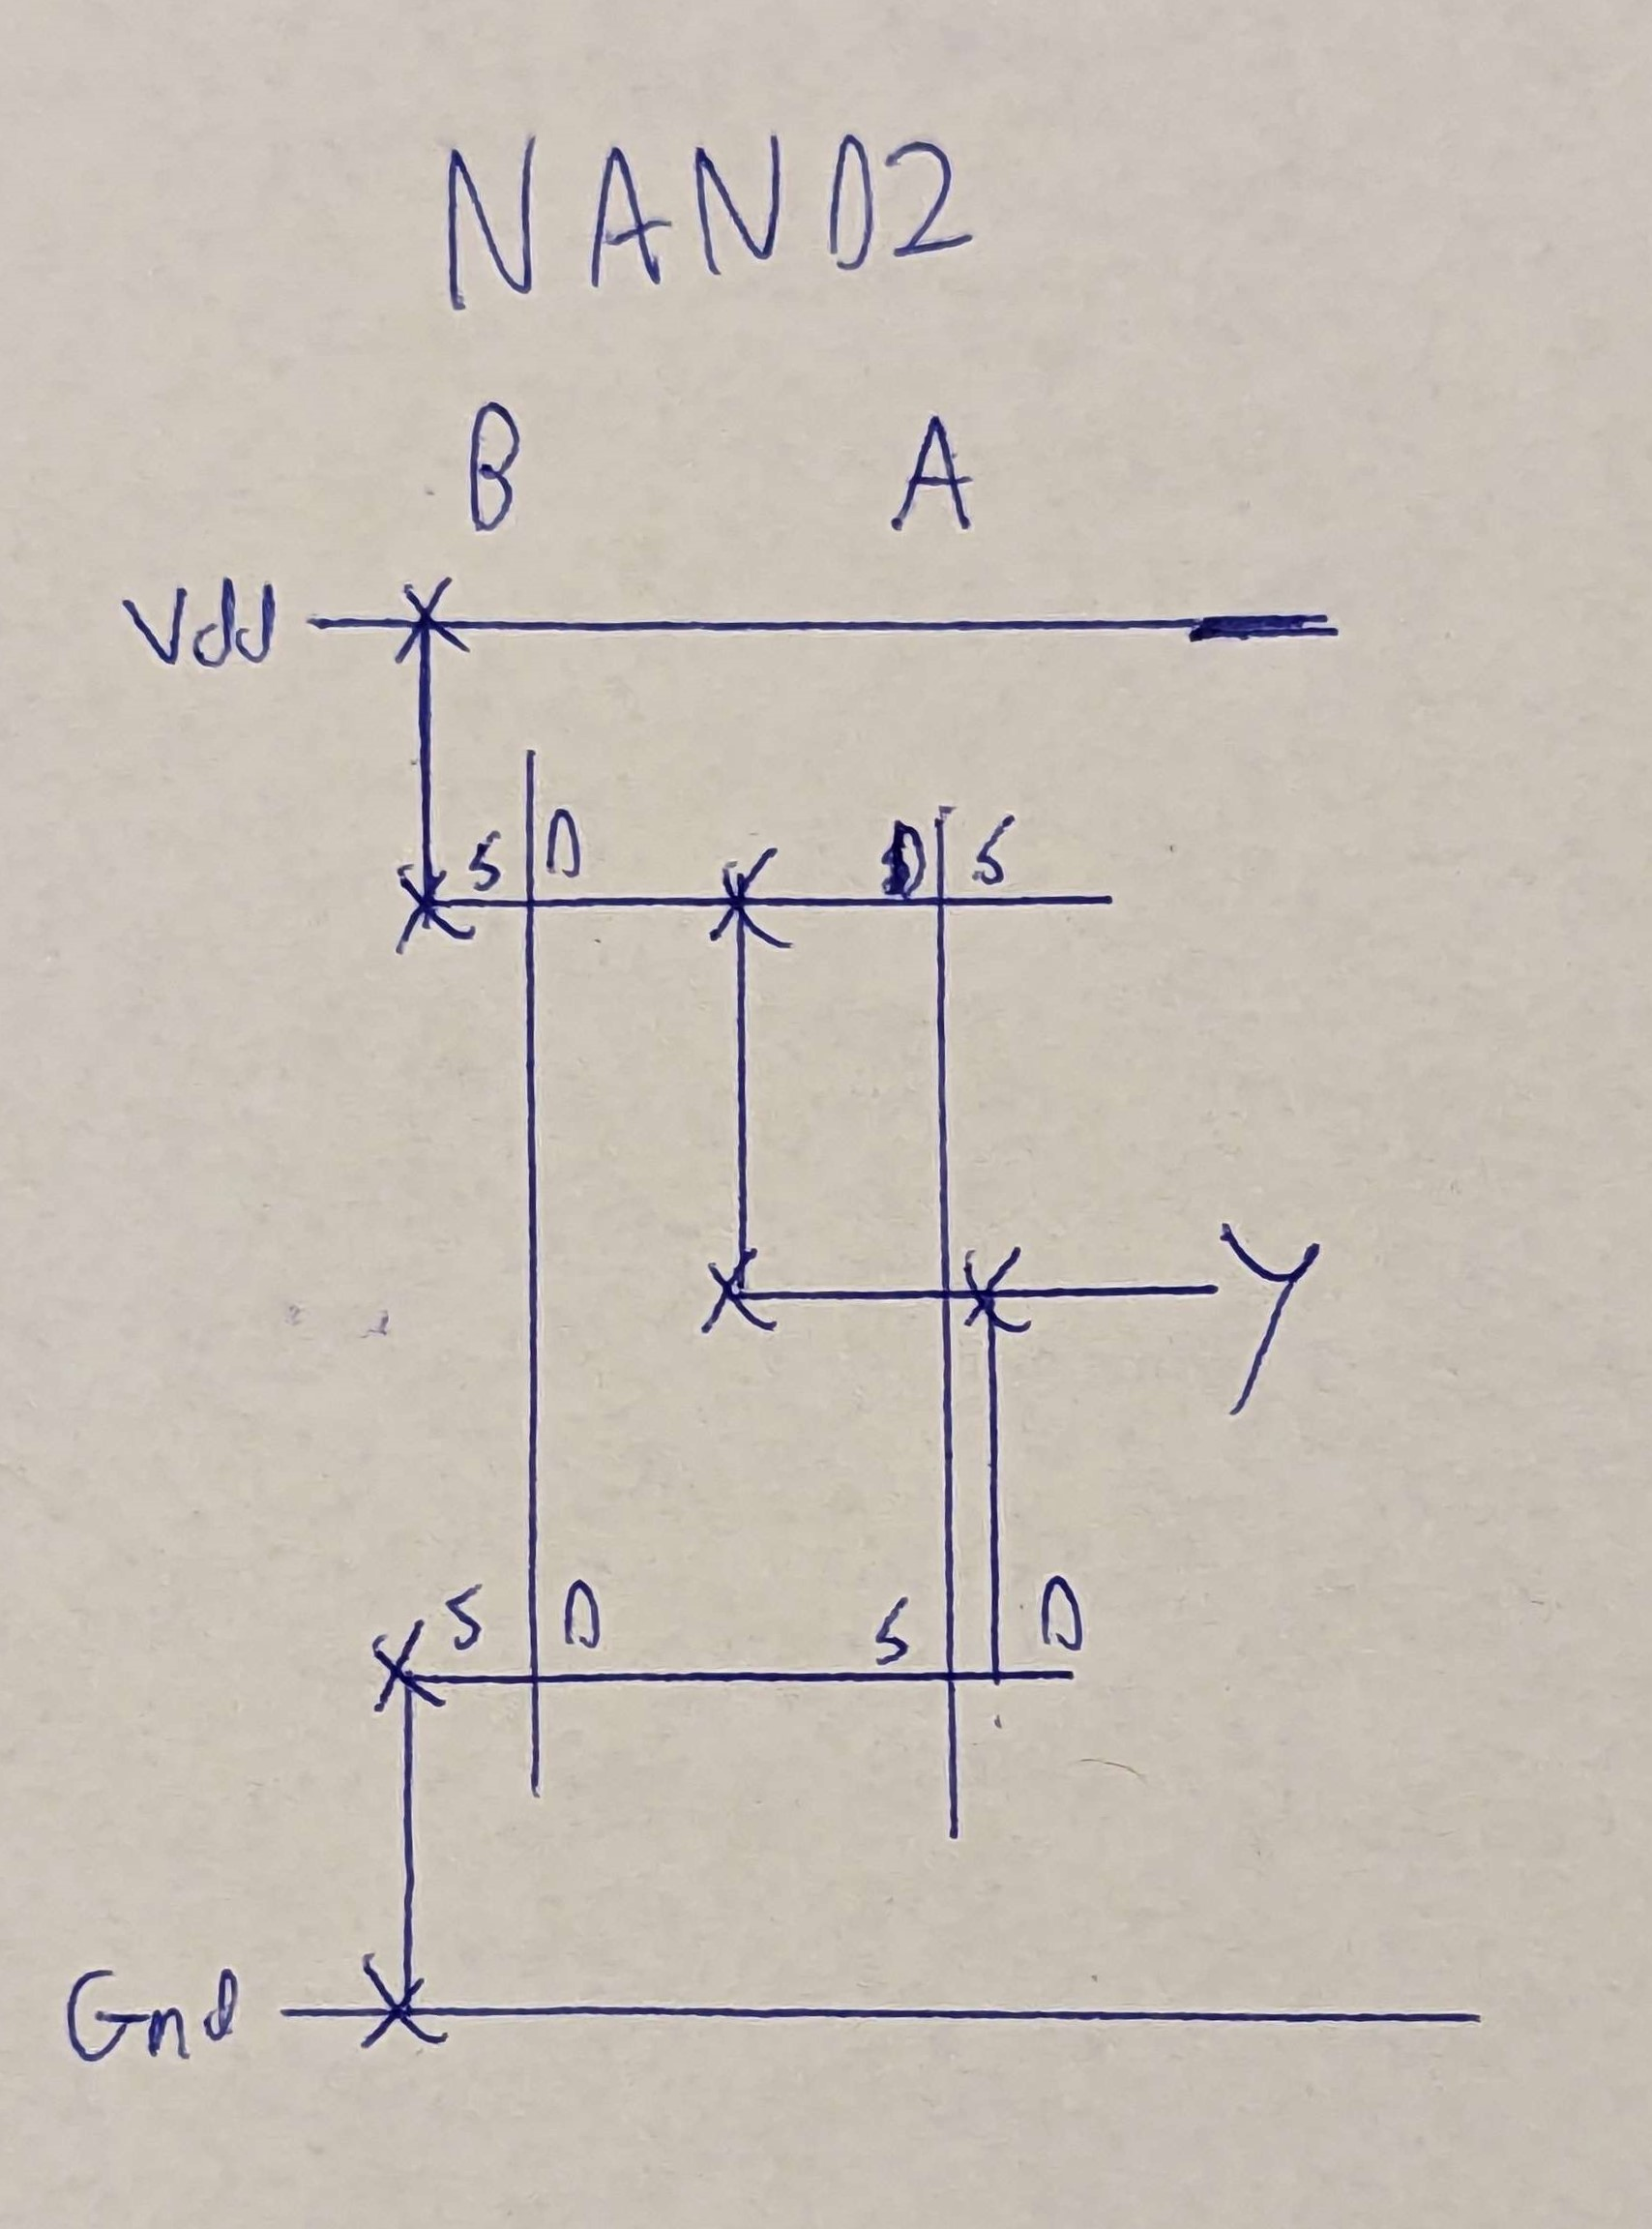 NAND2
B A
Vdd
S D D S
Y
S D S D
Gnd